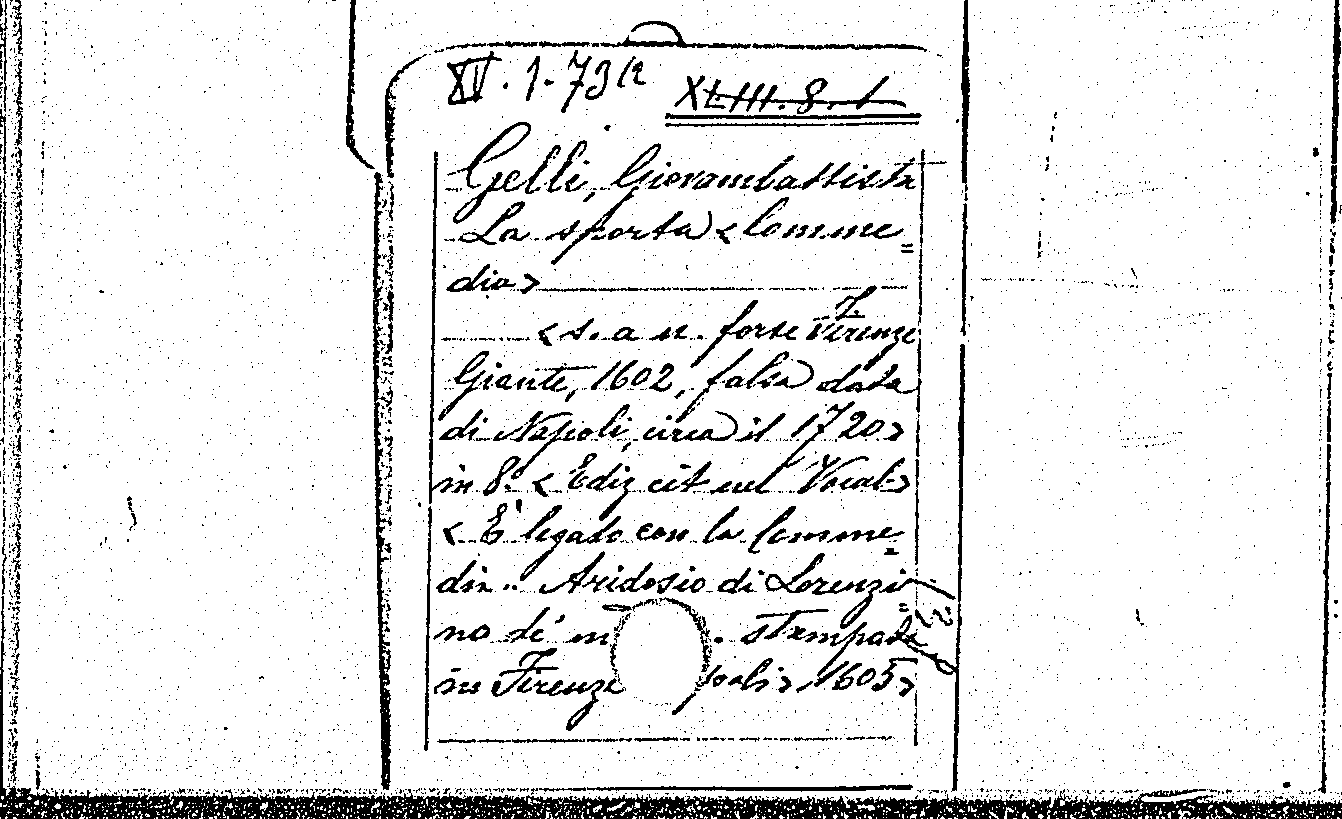 XV. 1. 73 12
XLIII. 8. 1
Gelli, Giovambattista
La sporta <Comme=
dia>
<s. a n. forse Firenze
Giante, 1602, falsa data
di Napoli, circa il 1720>
in 8.° <Ediz cit nel Vocab>
<E' legato con la Comme=
dia .. Aridosio di Lorenzi=
no de' m . stampata
in Firenze 1605>